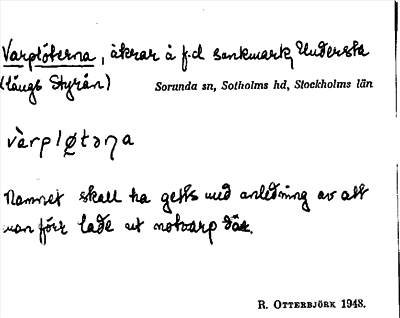 Varplöterna, åkrar å f.d sankmark, Understa
(längs Styrån) Sorunda sn, Sotholms hd, Stockholms län
vàrpløtəṇa
Namnet skall ha getts med anledning av att
man förr lade ut notvarp där.
R. OTTERBJÖRK 1948.